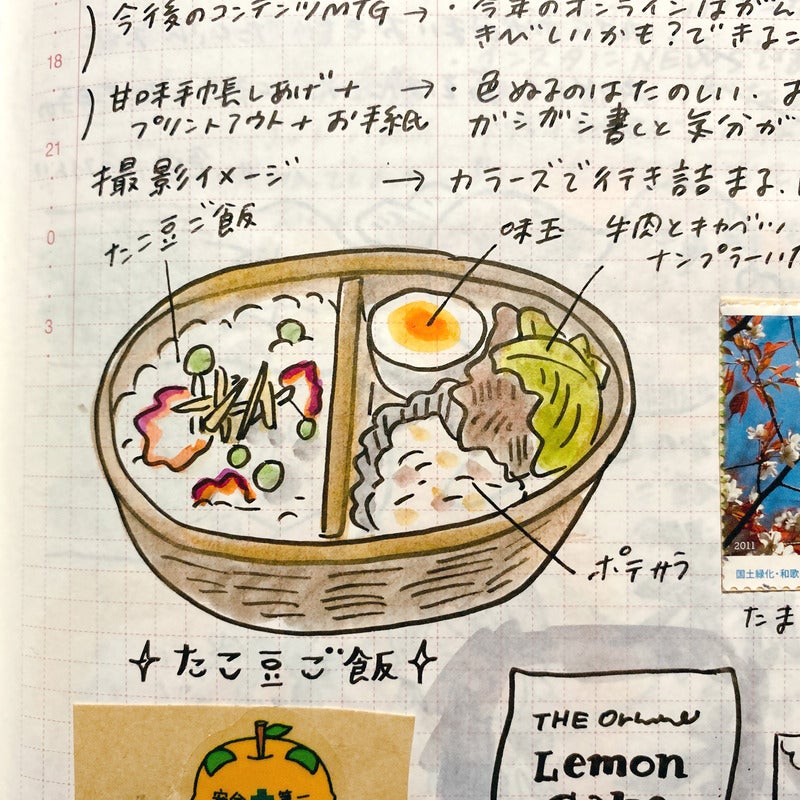 今後のコンテンツMTG → ・今年のオンラインはがん
きびしいかも?できるこ
18
甘味手帳しあげ+ → ・色ぬるのはたのしい.
プリントアウト+お手紙 ガシガシ書くと気分が
21
撮影イメージ → カラーズで行き詰まる.
たこ豆ご飯
味玉
牛肉とキャベツ
ナンプラーいた
0
3
ポテサラ
2011
国土緑化・和歌
たま
たこ豆ご飯
THE
Lemon
Cake
安全 第一